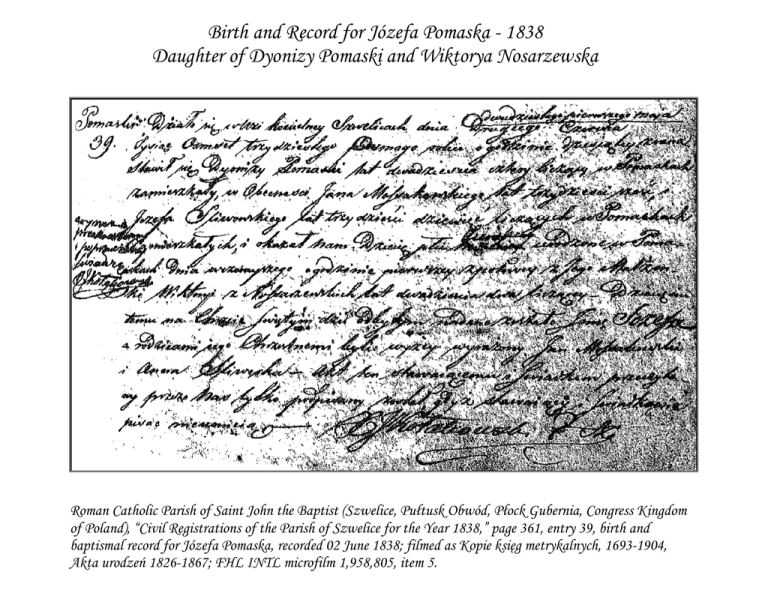 Birth and Record for Józefa Pomaska - 1838
Daughter of Dyonizy Pomaski and Wiktorya Nosarzewska
dwudziestego pierwszego maja
Działo się w wsi kościelney Szwelicach dnia Drugiego Czerwca
39. Tysiąc Ośmset trzydziestego Osmego roku o godzinie dziesiątey zrana
stawił się Dyonizy Pomaski lat dwadzieścia cztery liczący w Pomaskach
zamieszkały, w Obecności Jana lat trzydzieści sześć, i
Józefa Sliwowskiego lat trzydzieści dziewięć liczących w Pomaskach
zamieszkałych, i okazał nam Dziecię płci urodzone w Poma-
skach Dnia o godzinie pierwszy z jego Małżon-
ki Wiktoryi z lat dwadzieścia dwa Dziecięciu
temu na Chrzcie świętym dziś odbytym nadane zostało Imię Józefa
a rodzicami jego Chrzestnemi byli wyżey Jan
i Anna Sliwoska Akt ten stawaiącemu i świadkom przeczyta-
ny przez Nas tylko podpisany został gdyż stawaiący i świadkowie
pisać nieumieią
Roman Catholic Parish of Saint John the Baptist (Szwelice, Pułtusk Obwód, Płock Gubernia, Congress Kingdom
of Poland), “Civil Registrations of the Parish of Szwelice for the Year 1838,” page 361, entry 39, birth and
baptismal record for Józefa Pomaska, recorded 02 June 1838; filmed as Kopie ksiąg metrykalnych, 1693-1904,
Akta urodzeń 1826-1867; FHL INTL microfilm 1,958,805, item 5.